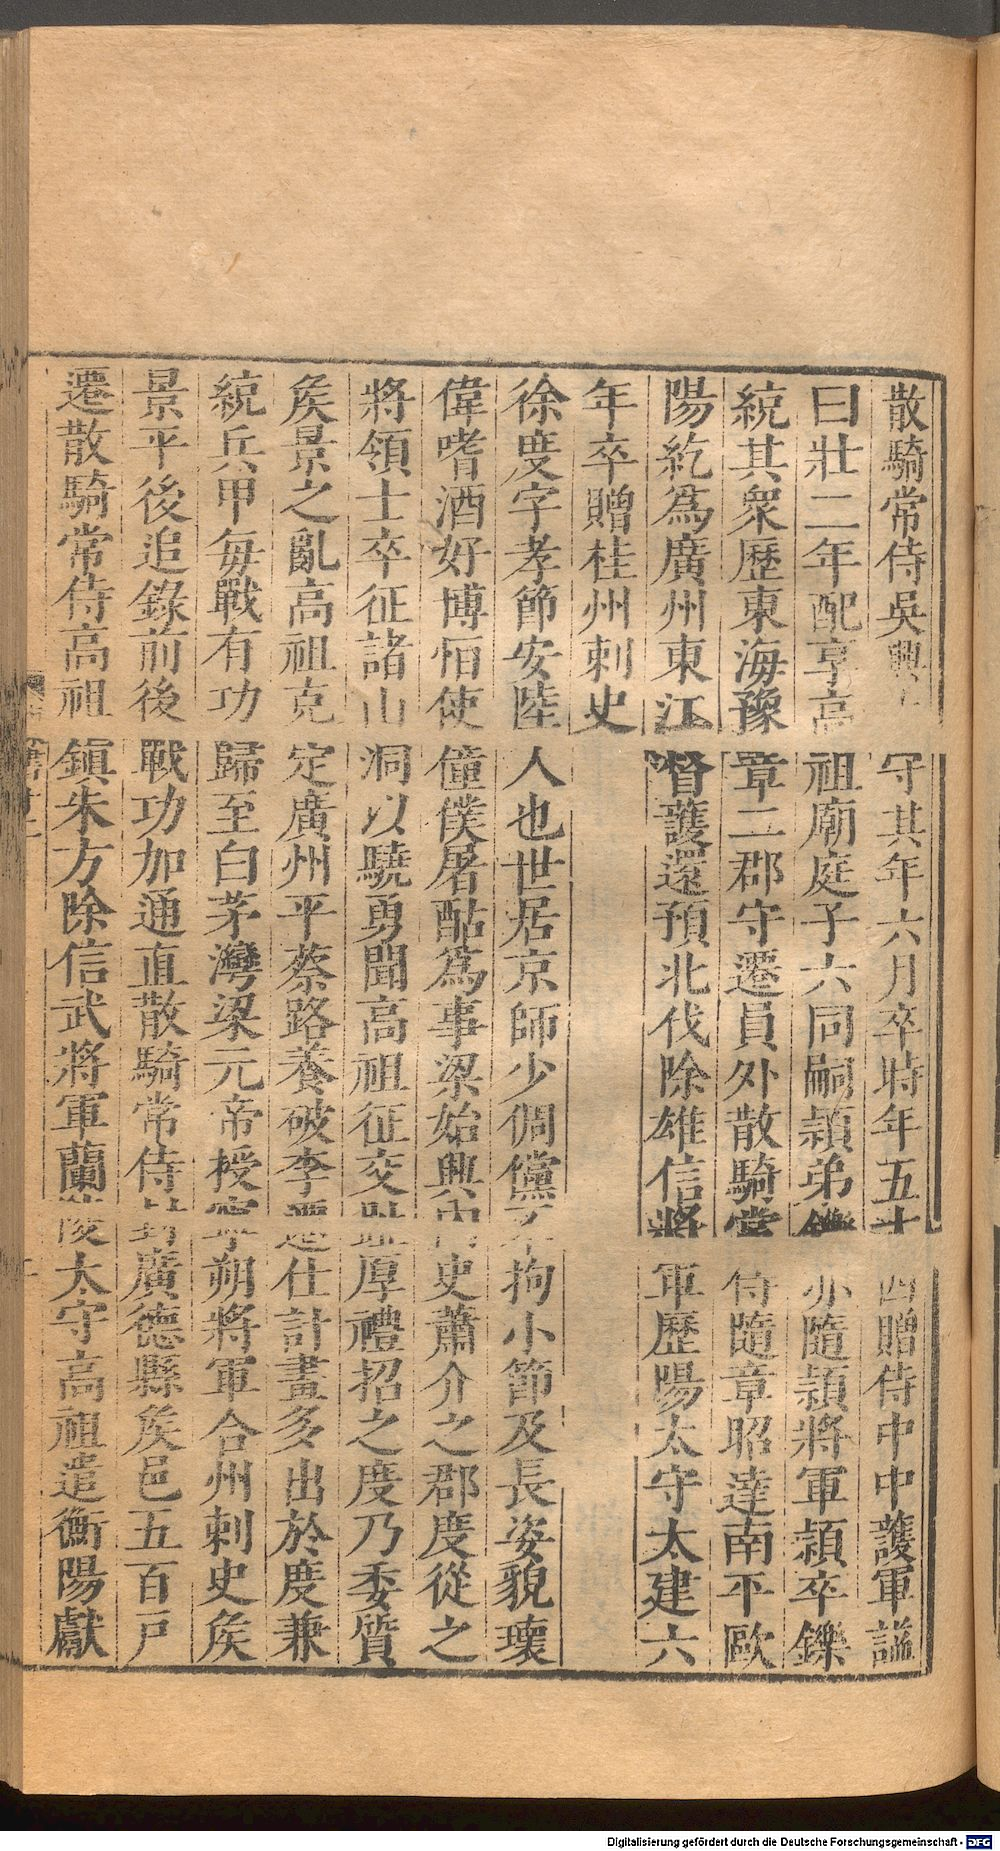 散騎常侍吳興太守其年六月卒時年五十四贈侍中中護軍謚
曰壯二年配享高祖廟庭子六同嗣頴弟鑠亦隨頴將軍頴卒鑠
統其衆歷東海豫章二郡守遷員外散騎常侍隨章昭達南平歐
陽紇爲廣州東江督護還預北伐除雄信將軍歷陽太守太建六
年卒贈桂州刺史
徐度字孝節安陸人也世居京師少倜儻不拘小節及長姿貌瓌
偉嗜酒好博恒使僮僕屠酤爲事梁始興內史蕭介之郡度從之
將領士卒征諸山洞以驍勇聞高祖征交阯厚禮招之度乃委質
矦景之亂高祖克定廣州平蔡路養破李遷仕計畫多出於度兼
統兵甲每戰有功歸至白茅灣梁元帝授寧朔將軍合州刺史矦
景平後追錄前後戰功加通直散騎常侍封廣德縣矦邑五百戸
遷散騎常侍高祖鎮朱方除信武將軍蘭陵太守高祖遣衡陽獻
Digitalisierung gefördert durch die Deutsche Forschungsgemeinschaft - DFG